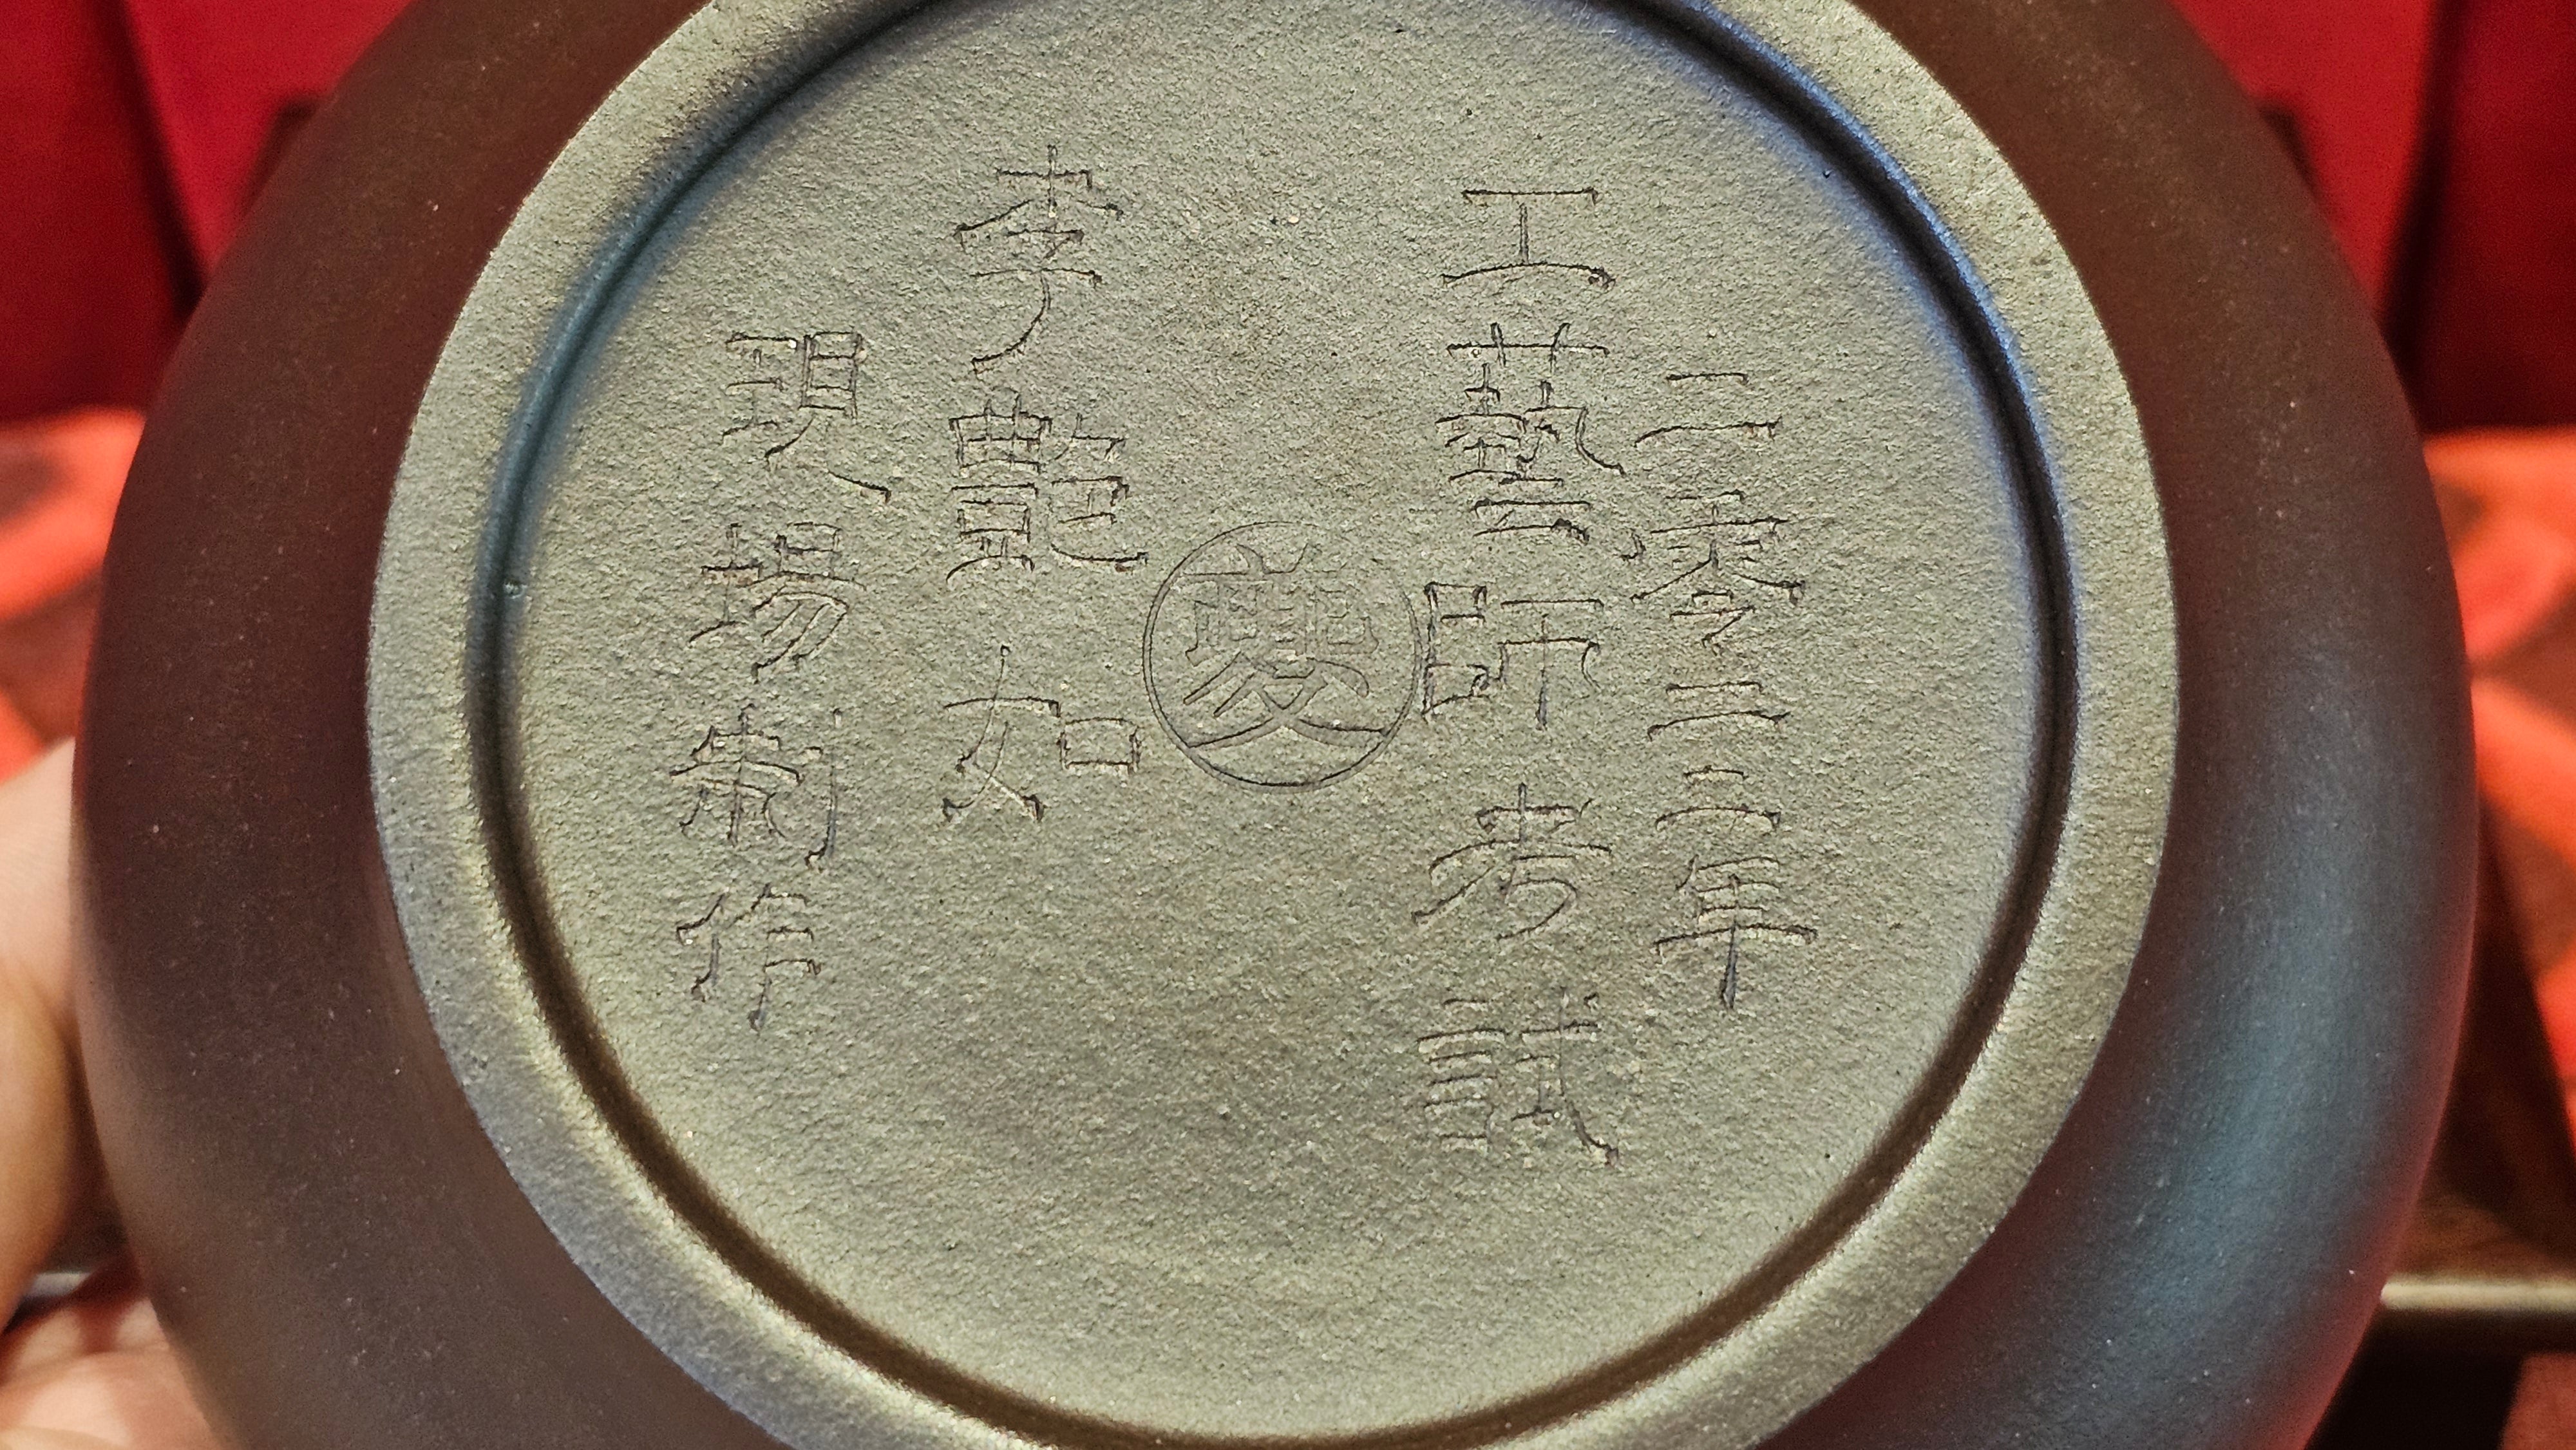 二零二二年
工藝師考試
夔
李艷如
現場制作